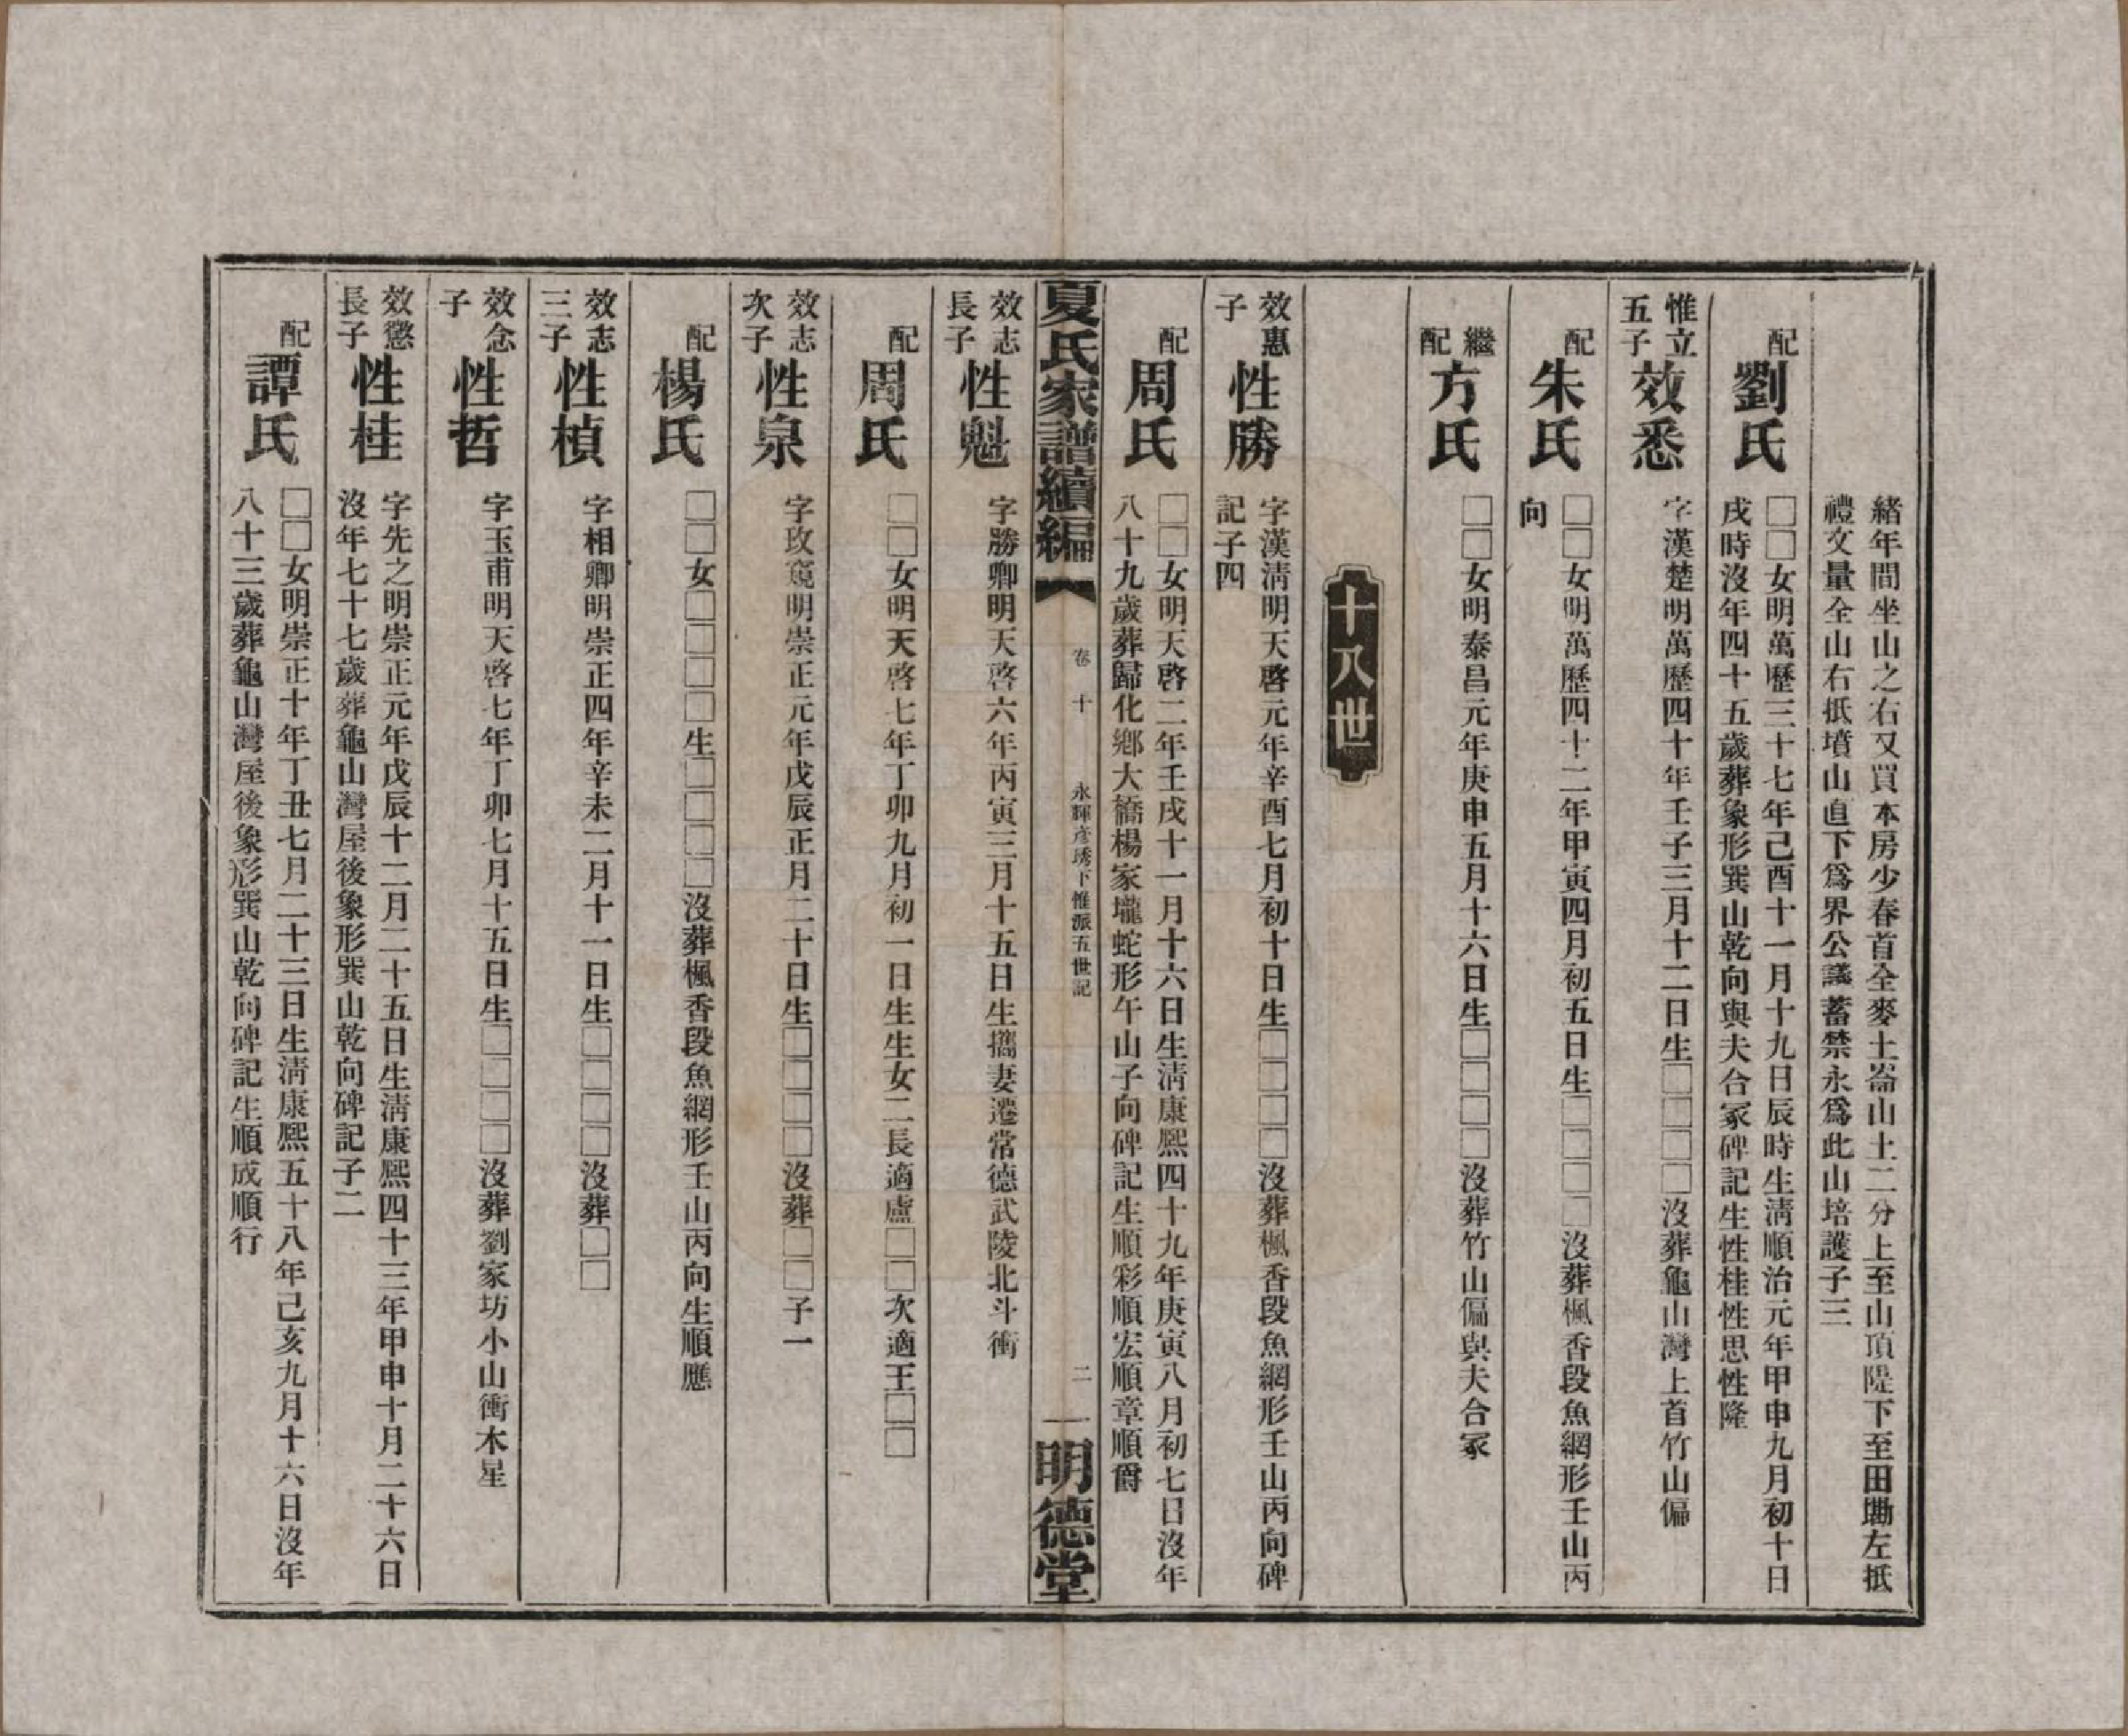 緒年間坐山之右又買本房少春首全麥土崙山土二分上至山頂隄下至田墈左抵
禮文量全山右抵墳山直下爲界公議蓄禁永爲此山培護子三
配
劉氏
□□女明萬歷三十七年己酉十一月十九日辰時生淸順治元年甲申九月初十日
戌時沒年四十五歲葬象形巽山乾向與夫合冢碑記生性桂性思性隆
惟立
五子
效悉
字漢楚明萬歷四十年壬子三月十二日生□□□□沒葬龜山灣上首竹山偏
配
朱氏
□□女明萬歷四十二年甲寅四月初五日生□□□□沒葬楓香段魚網形壬山丙
向
繼
配
方氏
□□女明泰昌元年庚申五月十六日生□□□□沒葬竹山偏與夫合冢
十八世
效惠
子
性勝
字漢淸明天啓元年辛酉七月初十日生□□□□沒葬楓香段魚網形壬山丙向碑
記子四
配
周氏
□□女明天啓二年壬戌十一月十六日生淸康熙四十九年庚寅八月初七日沒年
八十九歲葬歸化鄉大橋楊家壠蛇形午山子向碑記生順彩順宏順章順爵
夏氏家譜續編
卷十
永輝彦琇下惟派五世記
二
明德堂
效志
長子
性魁
字勝卿明天啓六年丙寅三月十五日生攜妻遷常德武陵北斗衝
配
周氏
□□女明天啓七年丁卯九月初一日生生女二長適盧□□次適王□□
效志
次子
性泉
字玫篔明崇正元年戊辰正月二十日生□□□□沒葬□□子一
配
楊氏
□□女□□□□生□□□□沒葬楓香段魚網形壬山丙向生順應
效志
三子
性楨
字相卿明崇正四年辛未二月十一日生□□□□沒葬□□
效念
子
性哲
字玉甫明天啓七年丁卯七月十五日生□□□□沒葬劉家坊小山衝木星
效懲
長子
性桂
字先之明崇正元年戊辰十二月二十五日生淸康熙四十三年甲申十月二十六日
沒年七十七歲葬龜山灣屋後象形巽山乾向碑記子二
配
譚氏
□□女明崇正十年丁丑七月二十三日生淸康熙五十八年己亥九月十六日沒年
八十三歲葬龜山灣屋後象形巽山乾向碑記生順成順行